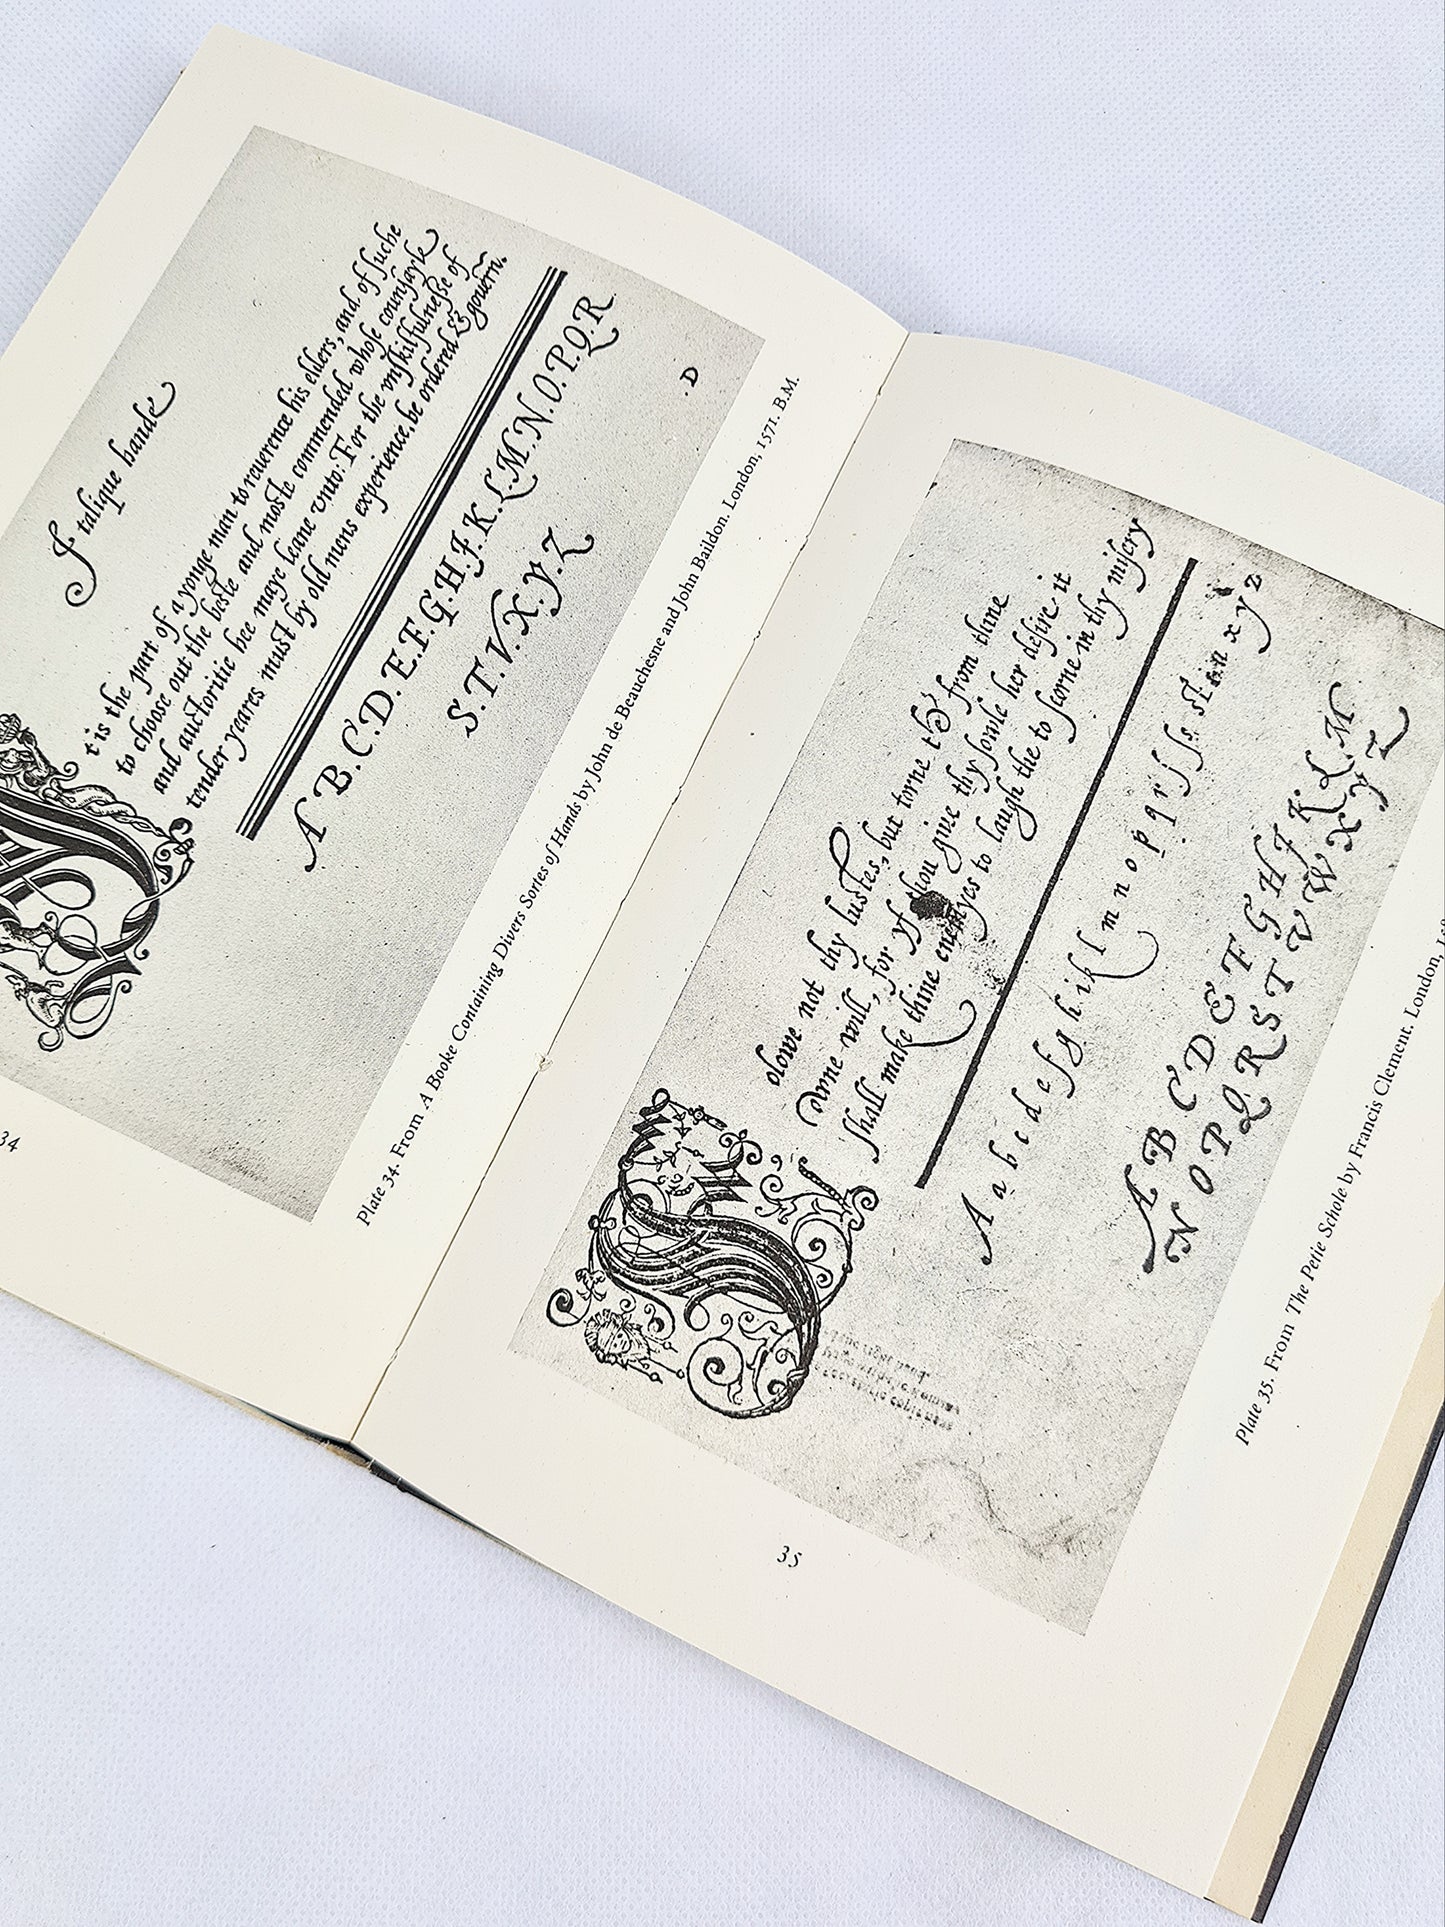 Italique hande
It is the part of a yonge man to reuerence his elders, and of suche
to choose out the beste and moste commended whose counsayle
and auctoritie hee maye leane vnto: For the vnskilfulnesse of
tender yeares must by old mens experience, be ordered & gouern.
A B.C.D.E.F.G.H.J.K.L.M.N.O.P.Q.R.
S.T.V.X.Y.Z
.D
Plate 34. From A Booke Containing Divers Sortes of Hands by John de Beauchesne and John Baildon. London, 1571. B.M.
34
olowe not thy lustes, but torne the from thine
owne will, for yf thou giue thy sowle her desire it
shall make thine enemyes to laugh the to scorne in thy misery
A a b c d e f g h i k l m n o p q r s ſ s ſt u x y z
A B C D E F G H J K L M
N O P Q R S T V W X Y Z
Plate 35. From The Petie Schole by Francis Clement. London,
35